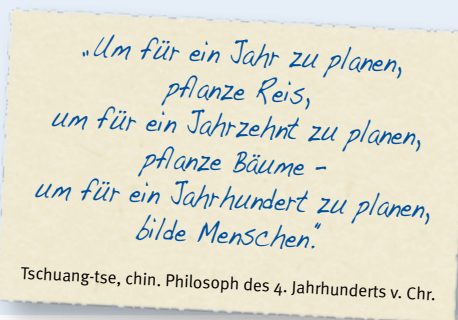 „Um für ein Jahr zu planen,
pflanze Reis,
um für ein Jahrzehnt zu planen,
pflanze Bäume –
um für ein Jahrhundert zu planen,
bilde Menschen.“
Tschuang-tse, chin. Philosoph des 4. Jahrhunderts v. Chr.